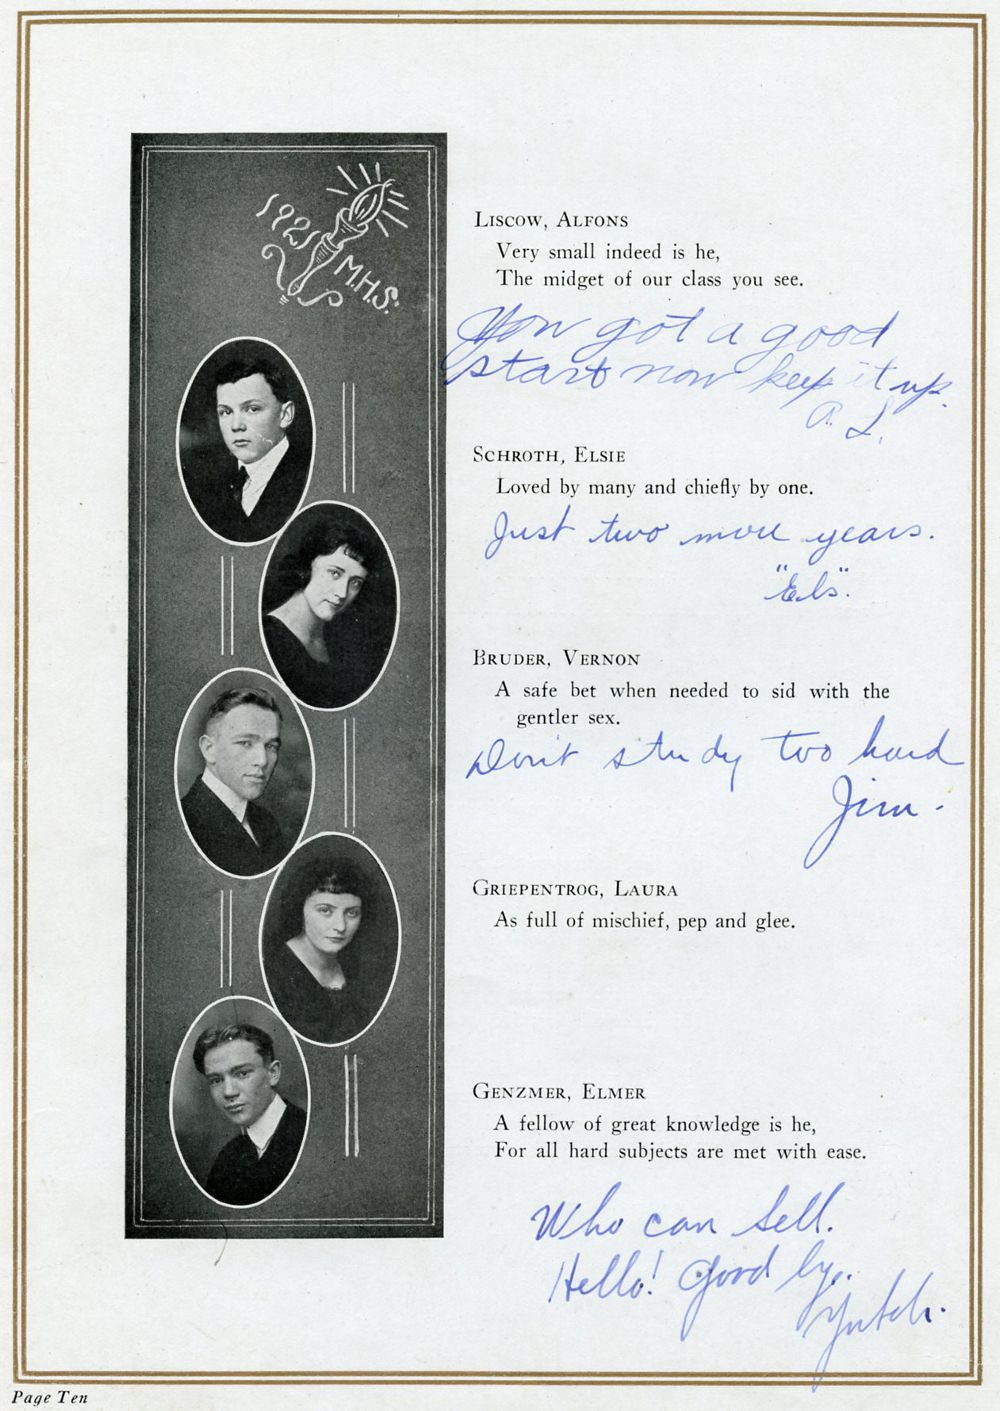 1921
M.H.S.
LISCOW, ALFONS
Very small indeed is he,
The midget of our class you see.
You got a good
start now keep it up.
A. L.
SCHROTH, ELSIE
Loved by many and chiefly by one.
Just two more years.
"Els".
BRUDER, VERNON
A safe bet when needed to sid with the
gentler sex.
Don't study too hard
Jim-
GRIEPENTROG, LAURA
As full of mischief, pep and glee.
GENZMER, ELMER
A fellow of great knowledge is he,
For all hard subjects are met with ease.
Who can
Hello! Good by.
Page Ten